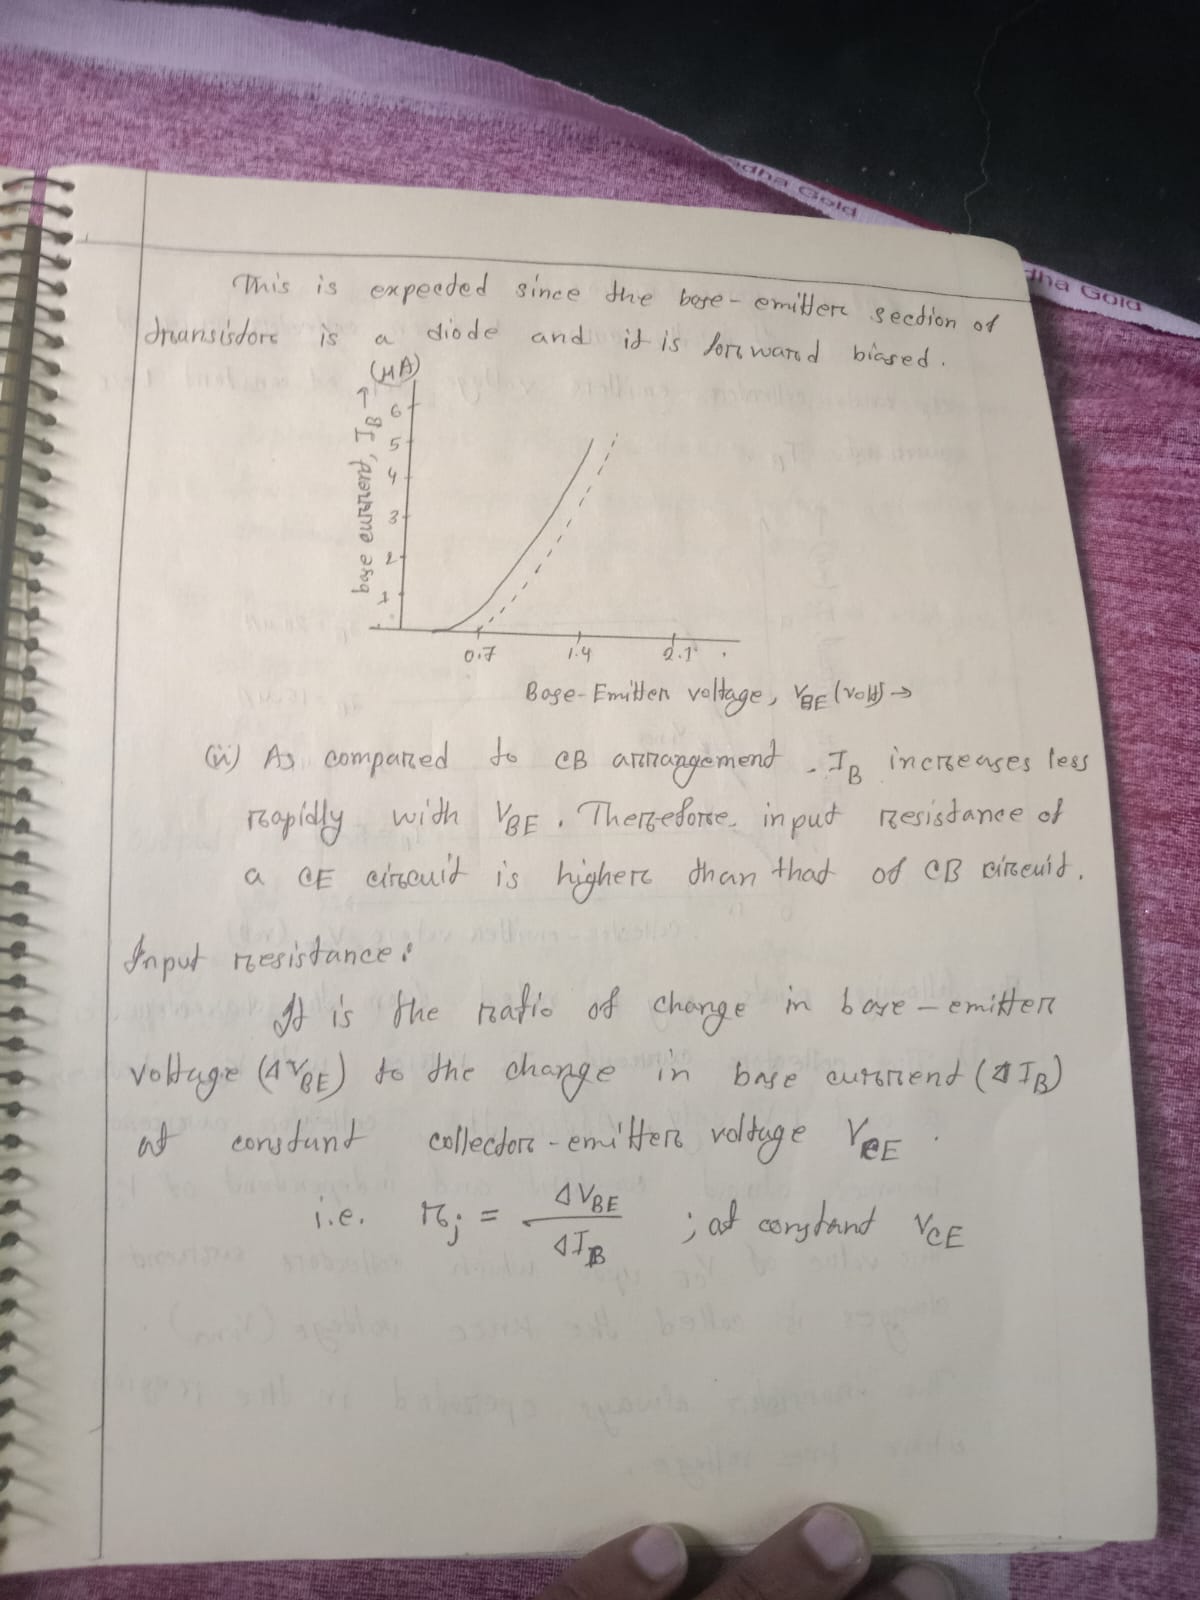 This is expected since the base-emitter section of
transistor is a diode and it is forward biased.
(μA)
base current, IB →
6
5
4
3
2
1
0.7 1.4 2.1
Base-Emitter voltage, VBE (volt) →
(ii) As compared to CB arrangement. IB increases less
rapidly with VBE. Therefore, input resistance of
a CE circuit is higher than that of CB circuit.
Input resistance:
It is the ratio of change in base-emitter
voltage (ΔVBE) to the change in base current (ΔIB)
at constant collector-emitter voltage VCE.
i.e. ri = ΔVBE / ΔIB ; at constant VCE
dha Gold
dha Gold